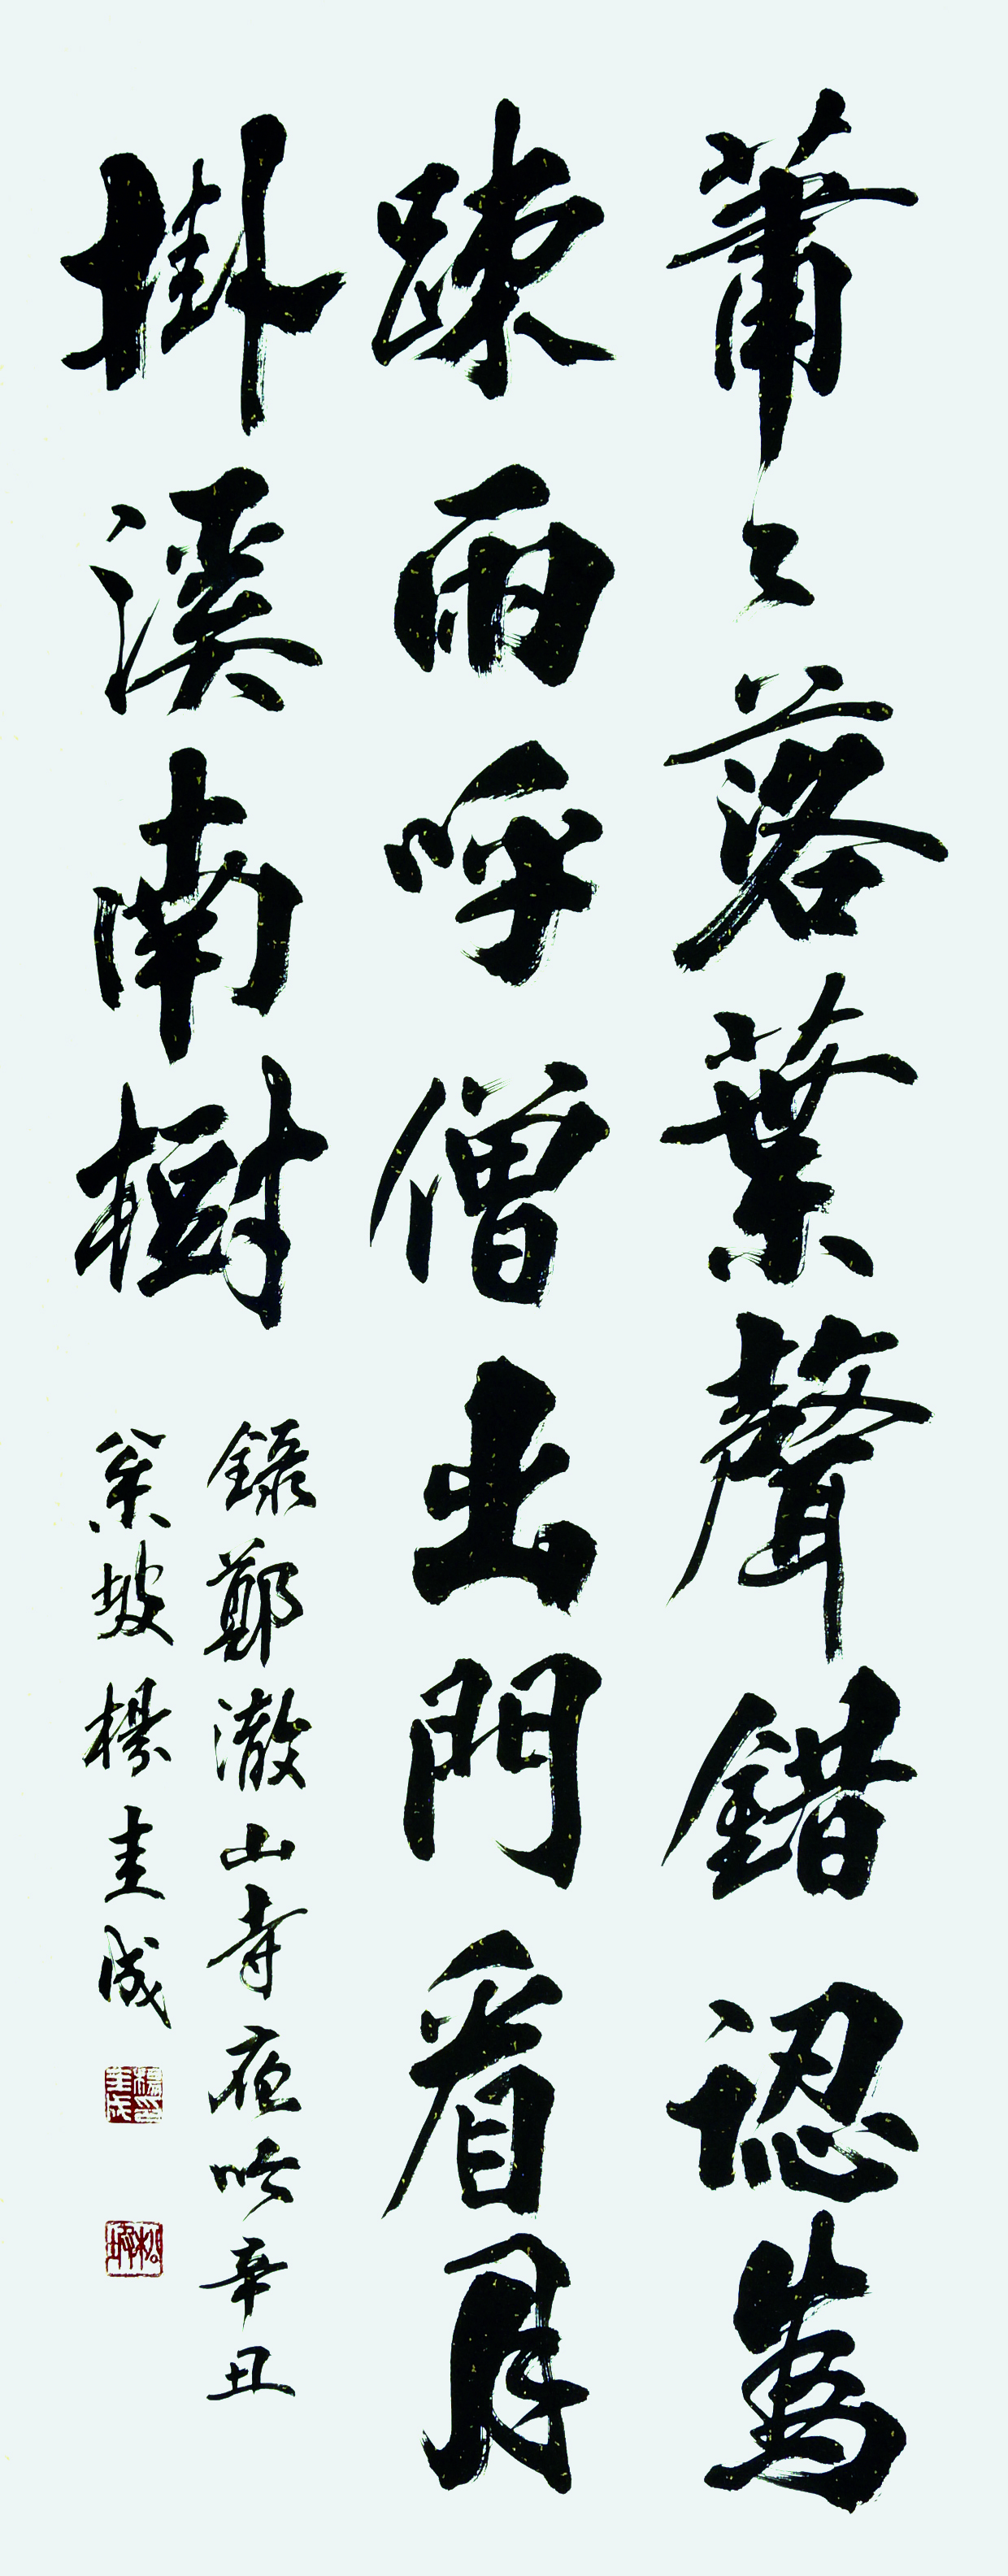 蕭々落葉聲錯認爲
疎雨呼僧出門看月
掛溪南樹
錄鄭澈山寺夜吟辛丑
榮坡楊圭成